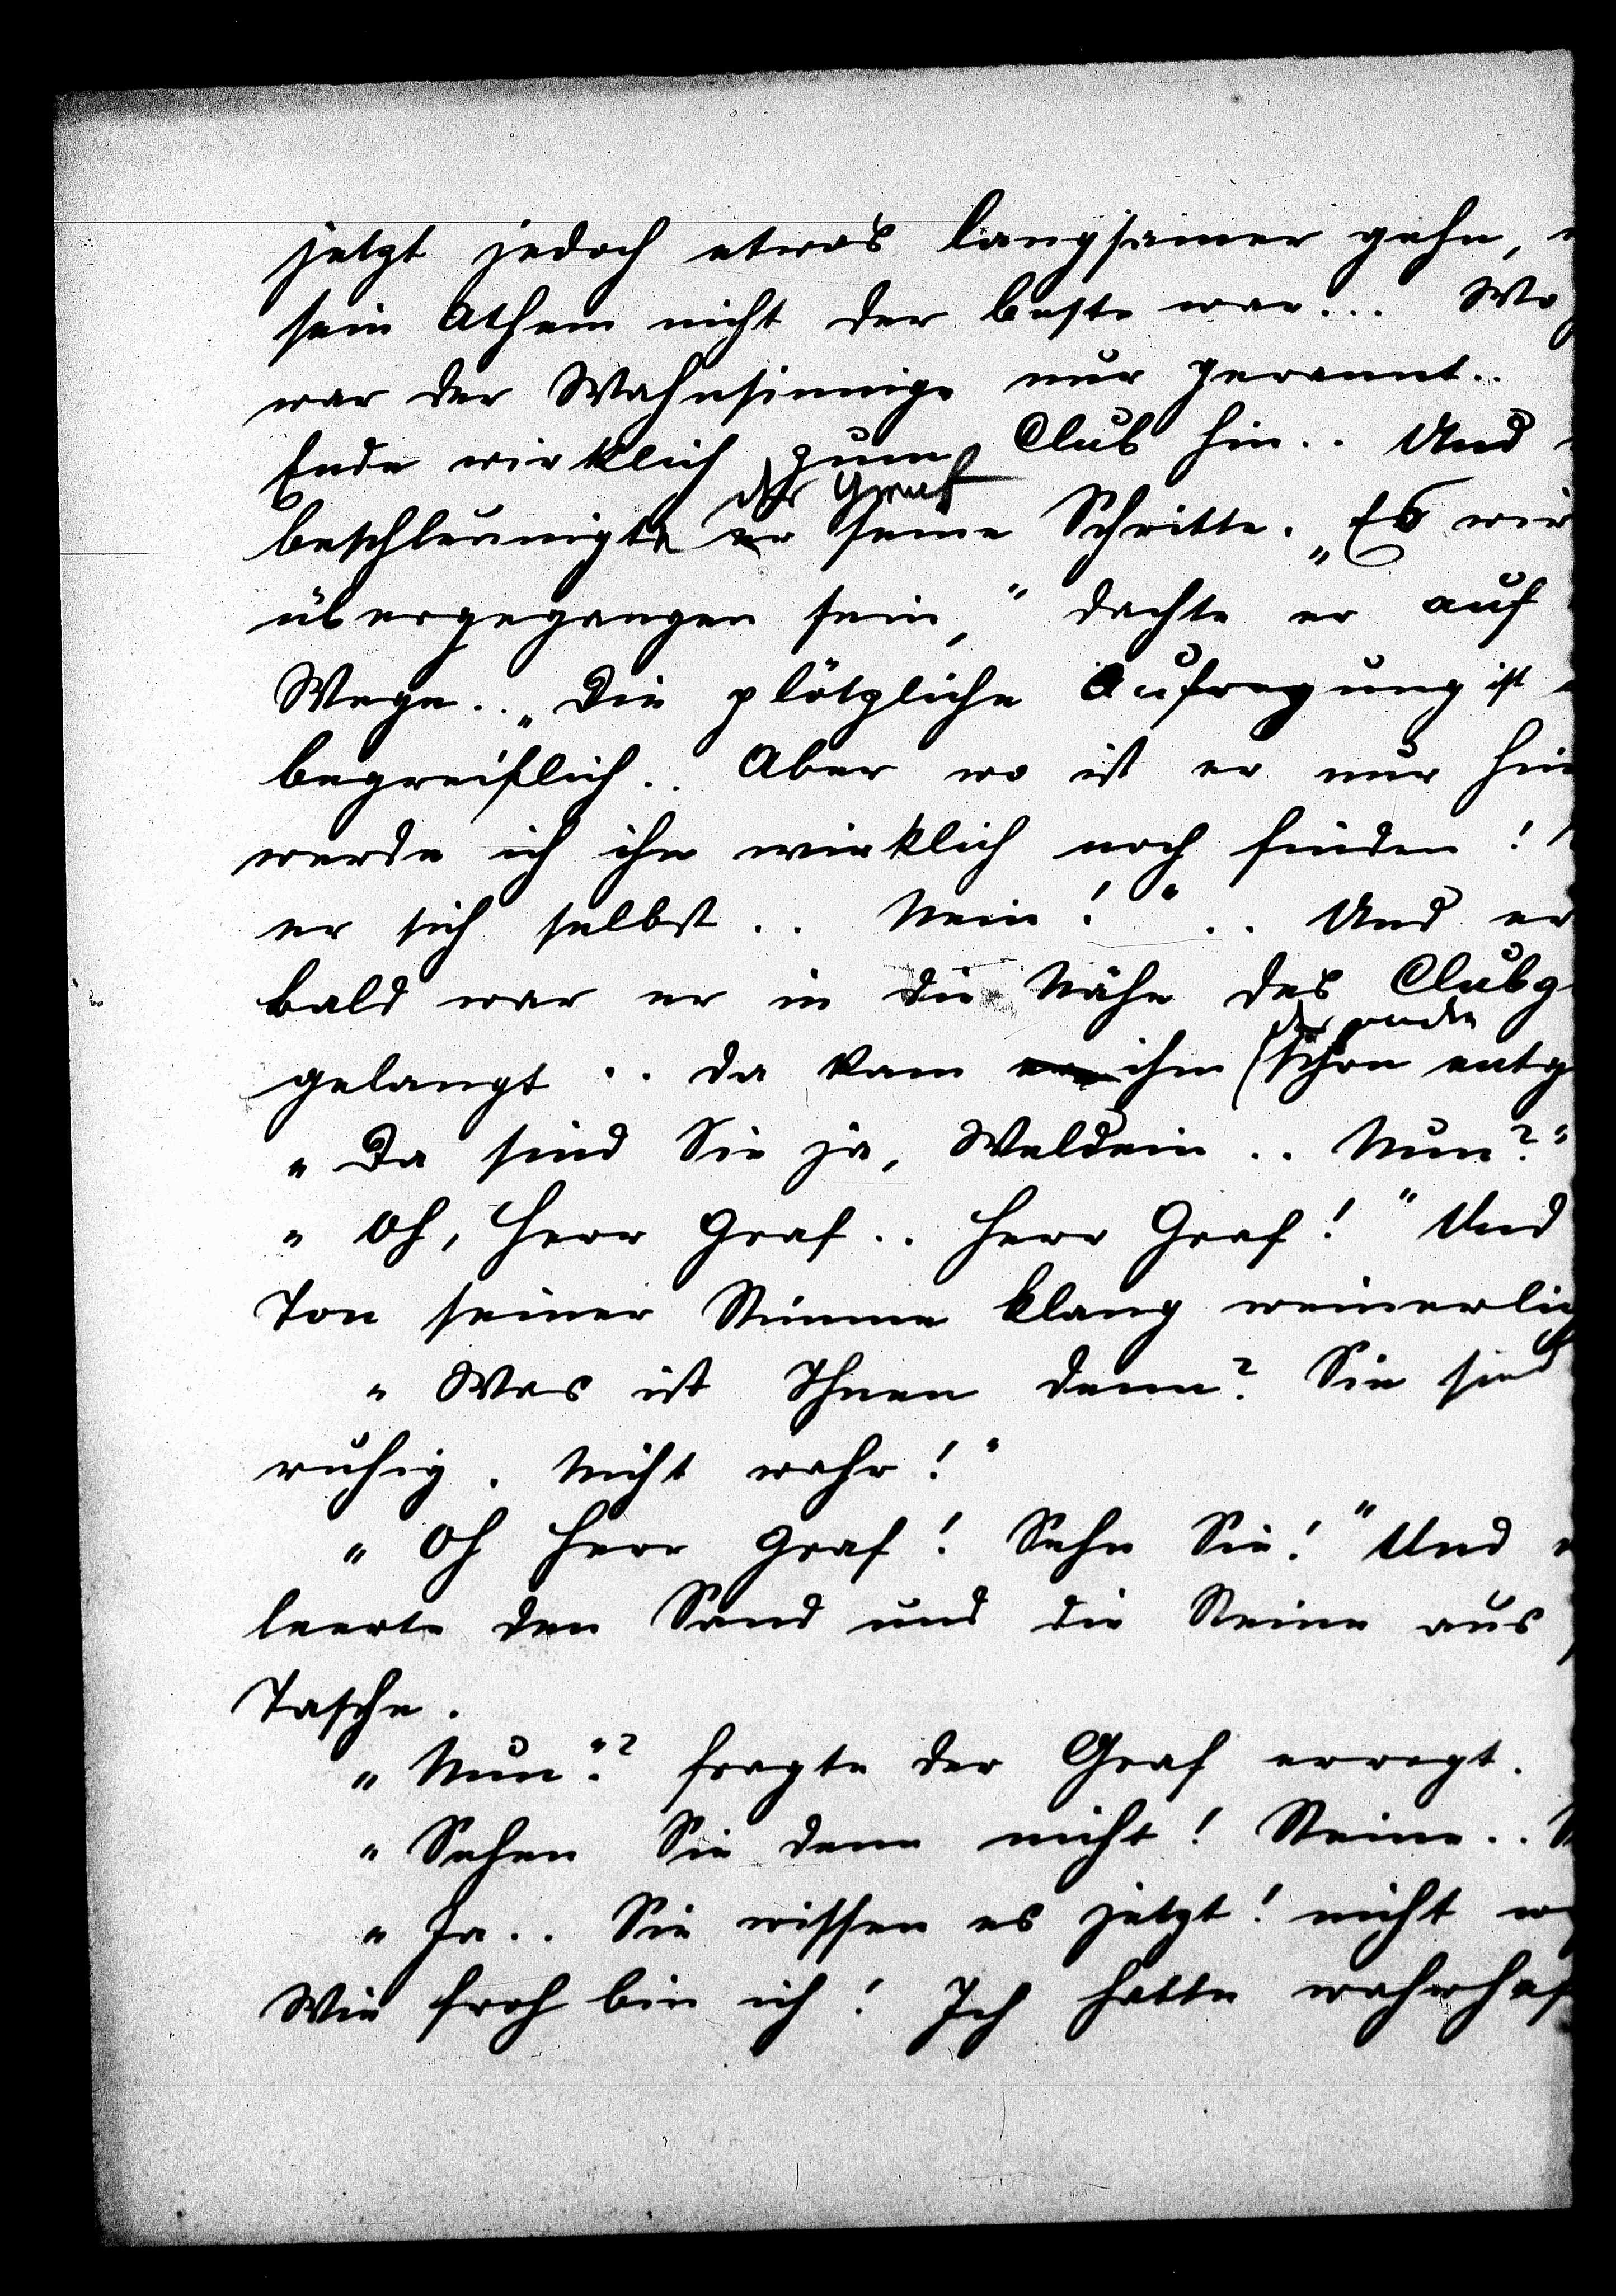 jetzt jedoch etwas langsamer gehn,
sein Athem nicht der beste war... Wo
war der Wahnsinnige nur gerannt..
Ende wirklich zum Club hin.. Und
der Graf
beschleunigte er seine Schritte. „Es wir
übergegangen sein," dachte er auf
Wege.. „Die plötzliche Aufregung ist
begreiflich.. Aber wo ist er nur hin
werde ich ihn wirklich noch finden!
er sich selbst.. Nein!".. Und er
bald war er in die Nähe des Clubg
der andre
gelangt.. da kam ihm (schon entg
„Da sind Sie ja, Weldein.. Nun?"
„Oh, Herr Graf.. Herr Graf!" Und
Ton seiner Stimme klang weinerlich
„Was ist Ihnen denn? Sie sind
ruhig. Nicht wahr!"
„Oh Herr Graf! Sehn Sie!" Und
leerte den Sand und die Steine aus
Tasche.
„Nun"? fragte der Graf erregt.
„Sehen Sie denn nicht! Steine..
„Ja.. Sie wissen es jetzt! nicht w
Wie froh bin ich! Ich hatte wahrhaf